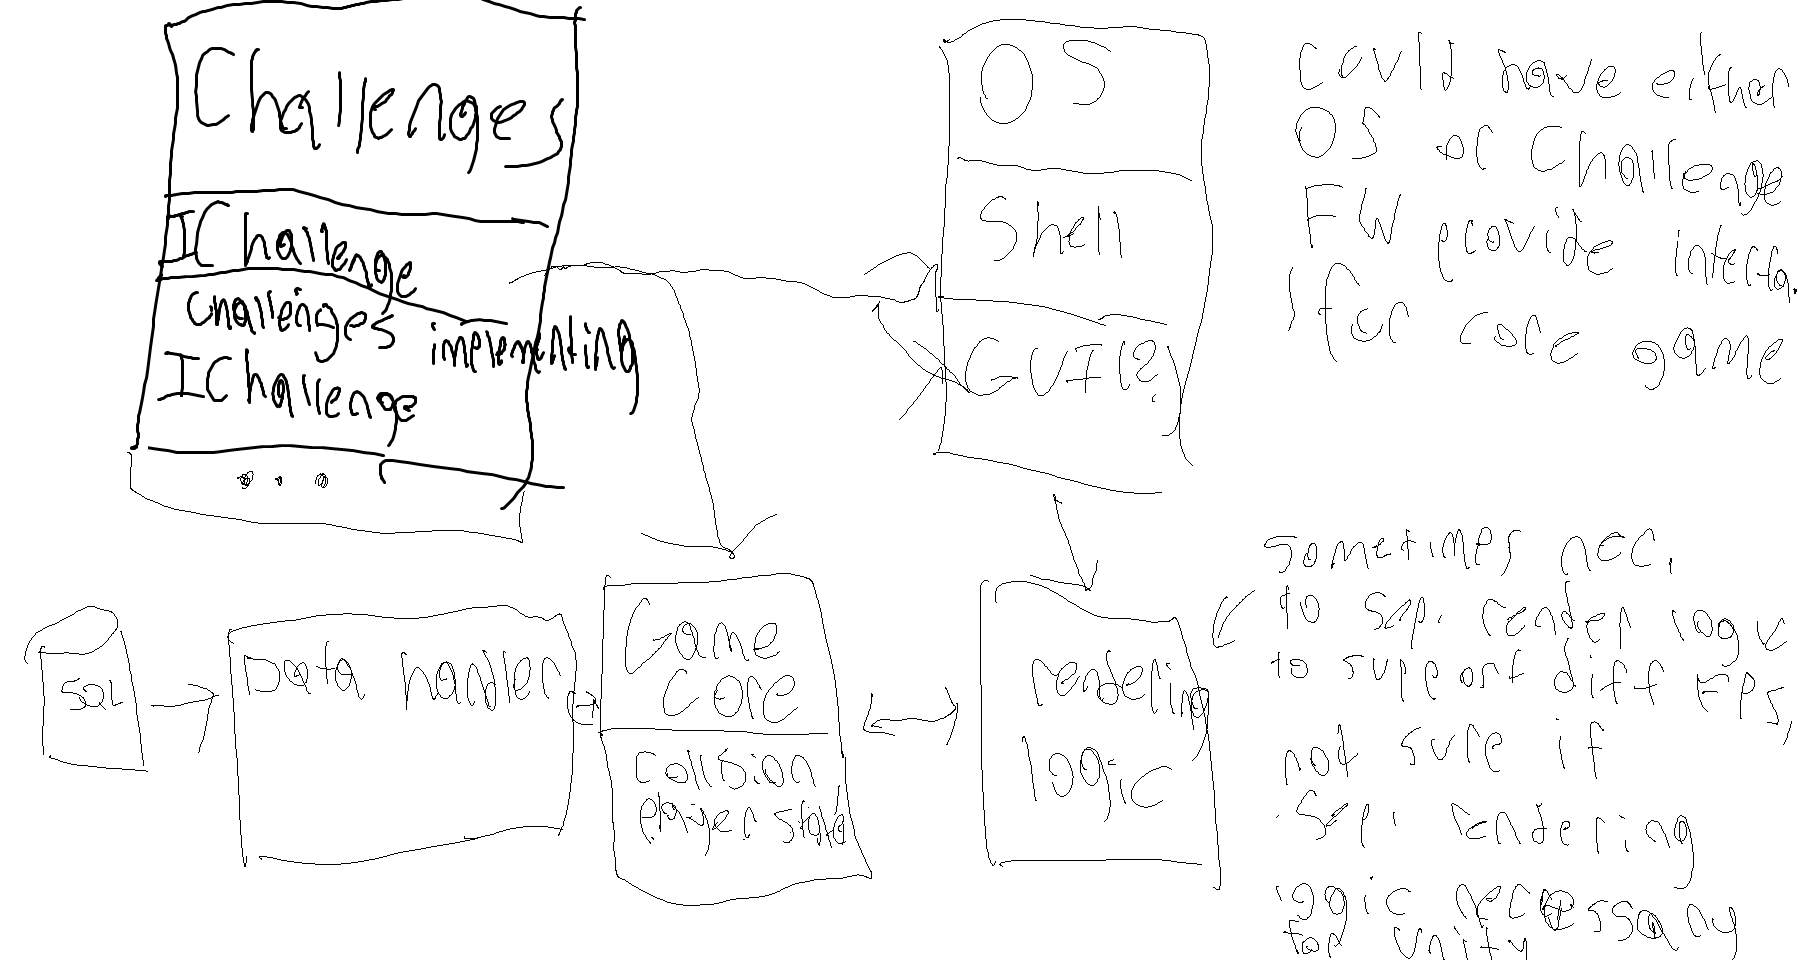 Challenges
IChallenge
Challenges implementing
IChallenge
OS
Shell
GUI(?)
could have either
OS or Challenge
FW provide interfa.
for core game
SQL
Data handler
Game
Core
Collision
player state
rendering
logic
sometimes nec.
to sep. render logic
to support diff FPS,
not sure if
sep. rendering
logic necessary
for Unity